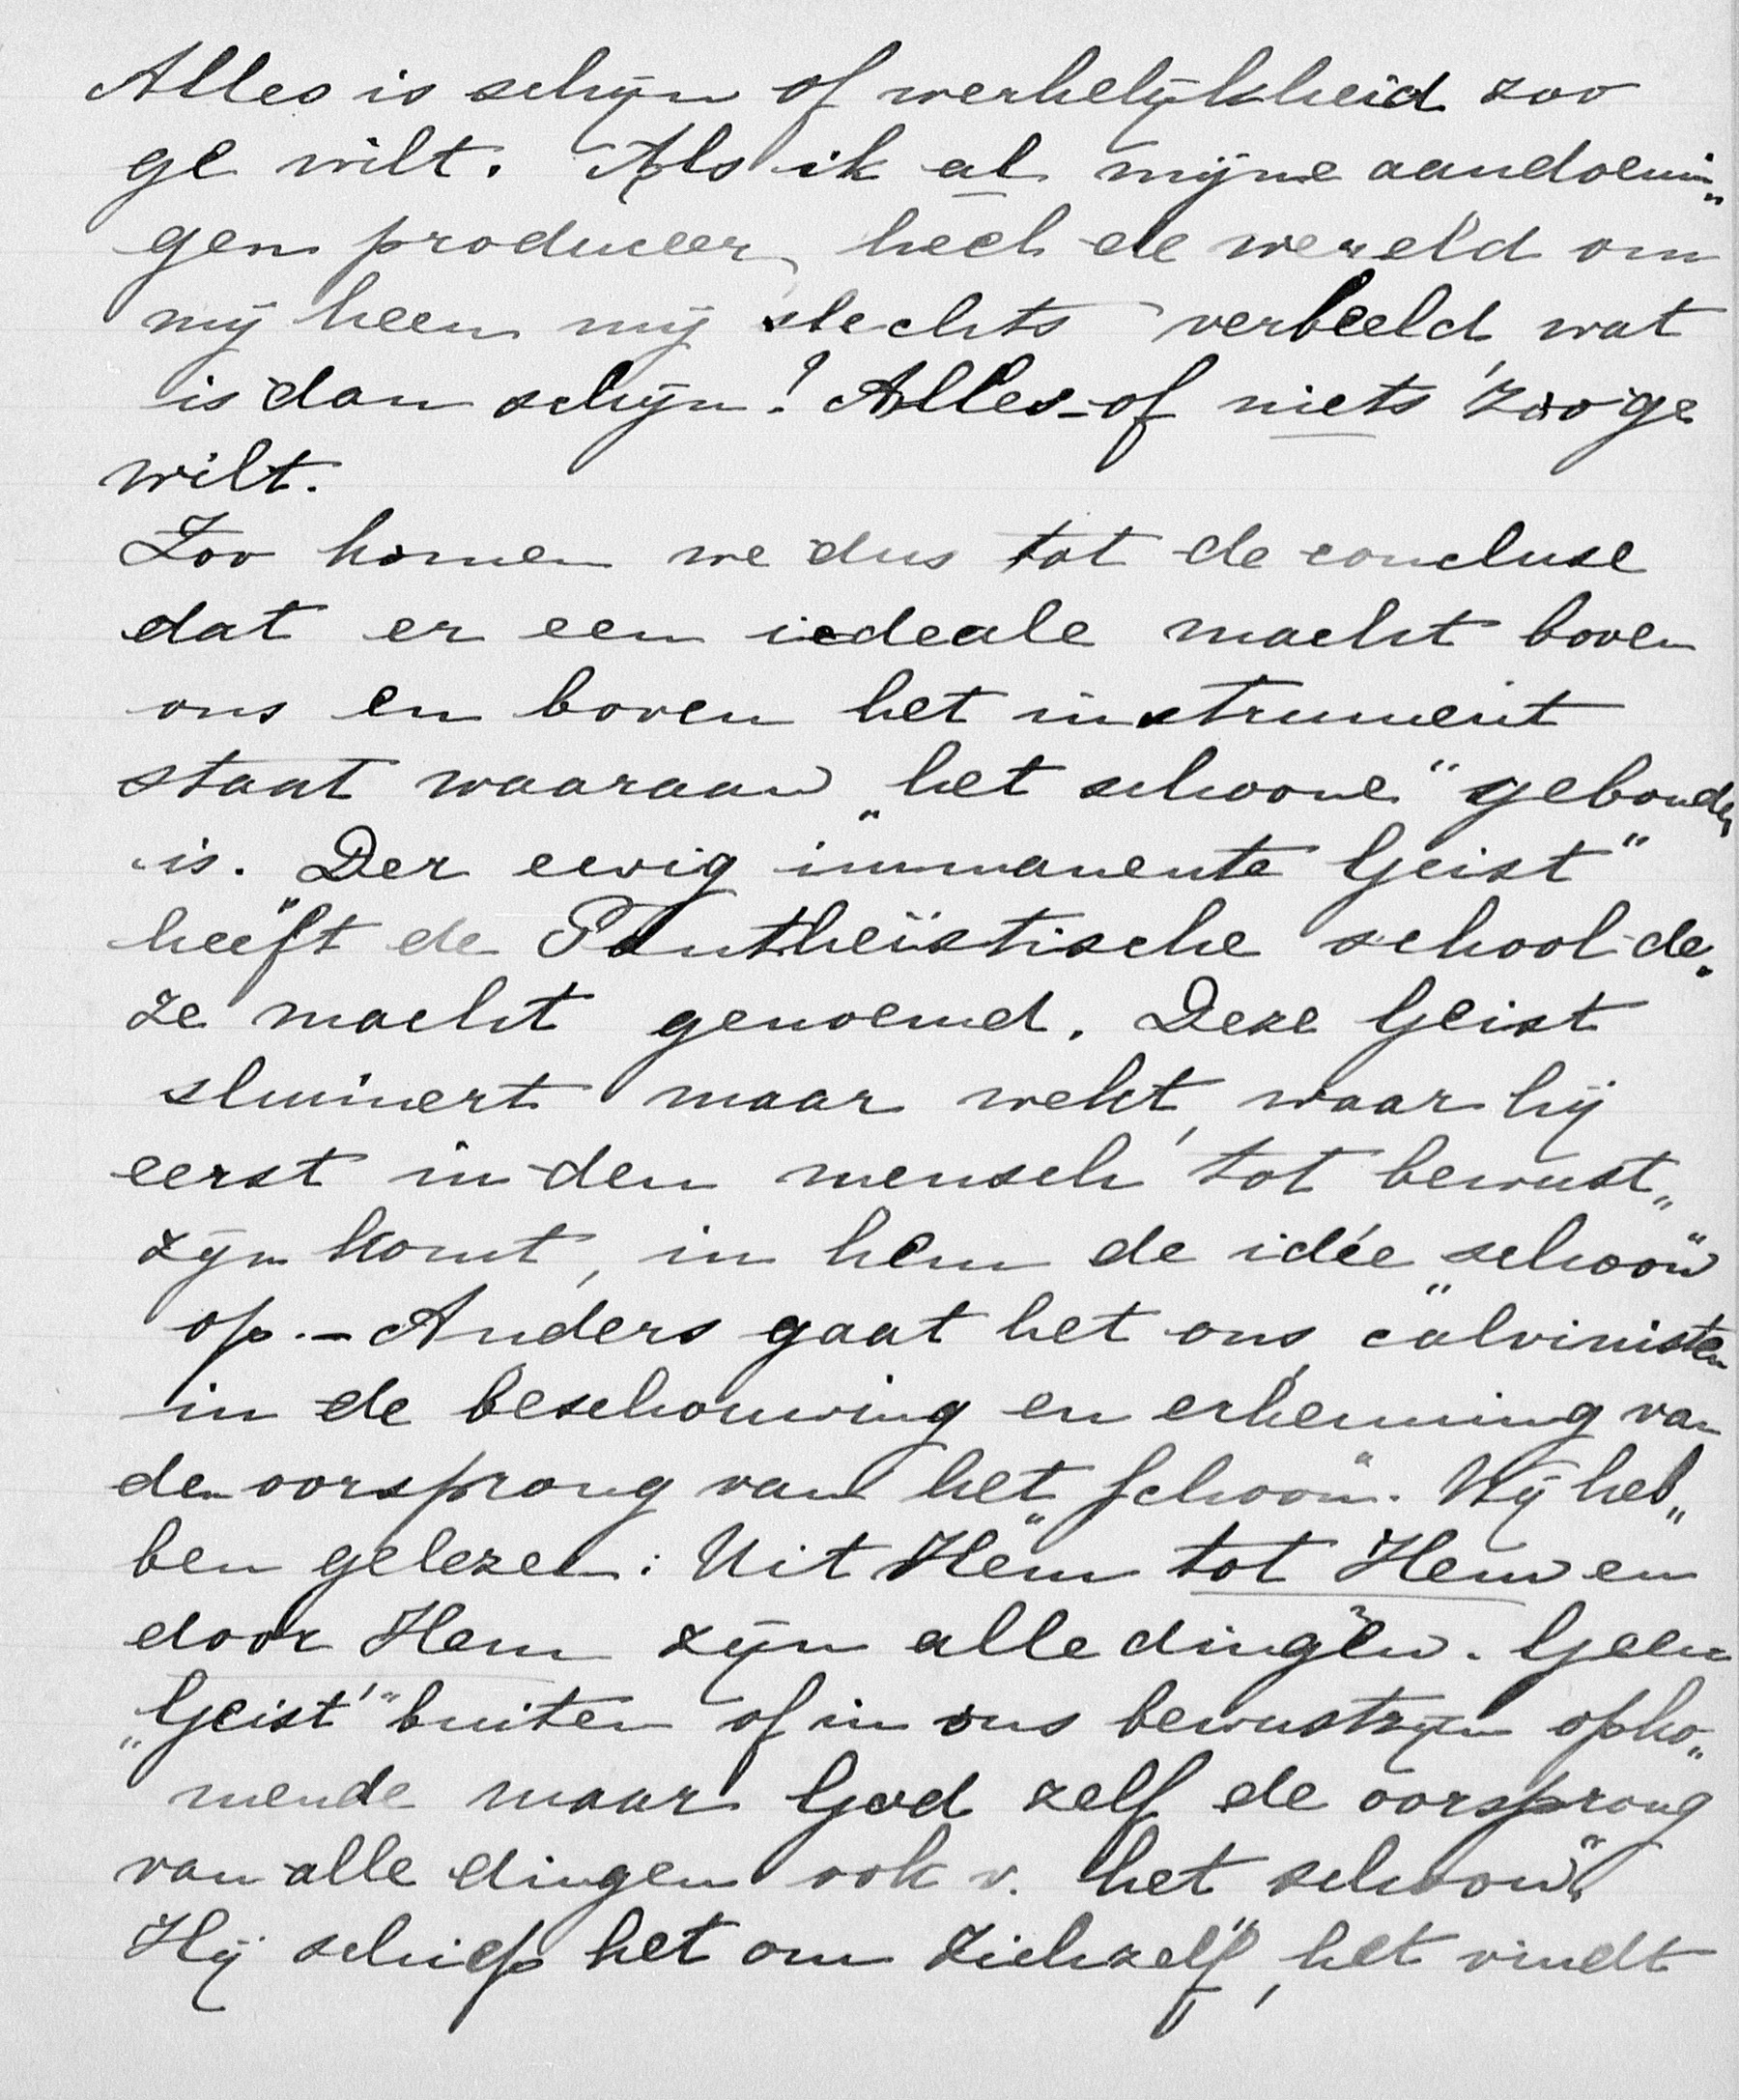 Alles is schijn of werkelijkheid zoo
ge wilt. Als ik al mijne aandoenin„
gen produceer, heel de wereld om
mij heen mij slechts verbeeld, wat
is dan schijn? Alles – of niets zoo ge
wilt.
Zoo komen we dus tot de concluse
dat er een iedeale macht boven
ons en boven het instrument
staat waaraan „het schoone" gebonden
is. „Der ewig immanente Geist"
heeft de Pantheïstische school de„
ze macht genoemd. Deze Geist
sluimert maar wekt, waar hij
eerst in den mensch tot bewust„
zijn komt, in hem de idée „schoon"
op. – Anders gaat het ons, calvinisten
in de beschouwing en erkenning van
den oorsprong van het „schoon". Wij heb„
ben gelezen: Uit Hem tot Hem en
door Hem zijn alle dingen. Geen
„Geist" buiten of in ons bewustzijn opko„
mende maar God zelf de oorsprong
van alle dingen ook v. het „schoon"
Hij schiep het om Zichzelf, het vindt